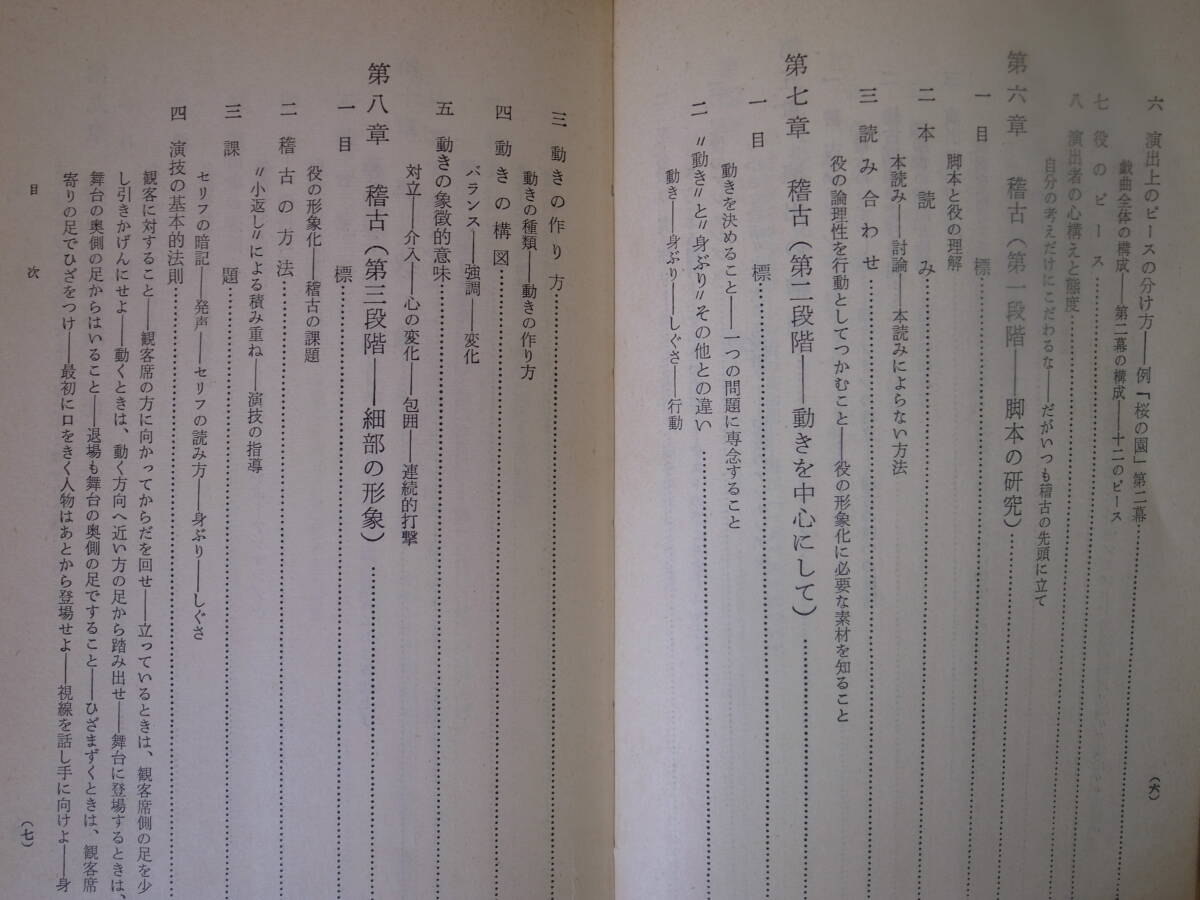 六 演出上のピースの分け方――例「桜の園」第二幕
戯曲全体の構成――第二幕の構成――十二のピース
七 役のピース
八 演出者の心構えと態度
自分の考えだけにこだわるな――だがいつも稽古の先頭に立て
第六章 稽古（第一段階――脚本の研究）
一 目標
脚本と役の理解
二 本読み
本読み――討論――本読みによらない方法
三 読み合わせ
役の論理性を行動としてつかむこと――役の形象化に必要な素材を知ること
第七章 稽古（第二段階――動きを中心にして）
一 目標
動きを決めること――一つの問題に専念すること
二 〃動き〃と〃身ぶり〃その他との違い
動き――身ぶり――しぐさ――行動
（六）
三 動きの作り方
動きの種類――動きの作り方
四 動きの構図
バランス――強調――変化
五 動きの象徴的意味
対立――介入――心の変化――包囲――連続的打撃
第八章 稽古（第三段階――細部の形象）
一 目標
役の形象化――稽古の課題
二 稽古の方法
〃小返し〃による積み重ね――演技の指導
三 課題
セリフの暗記――発声――セリフの読み方――身ぶり――しぐさ
四 演技の基本的法則
観客に対すること――観客席の方に向かってからだを回せ――立っているときは、観客席側の足を少
し引きかげんにせよ――動くときは、動く方向へ近い方の足から踏み出せ――舞台に登場するときは、
舞台の奥側の足からはいること――退場も舞台の奥側の足ですること――ひざまずくときは、観客席
寄りの足でひざをつけ――最初に口をきく人物はあとから登場せよ――視線を話し手に向けよ――身
目次
（七）